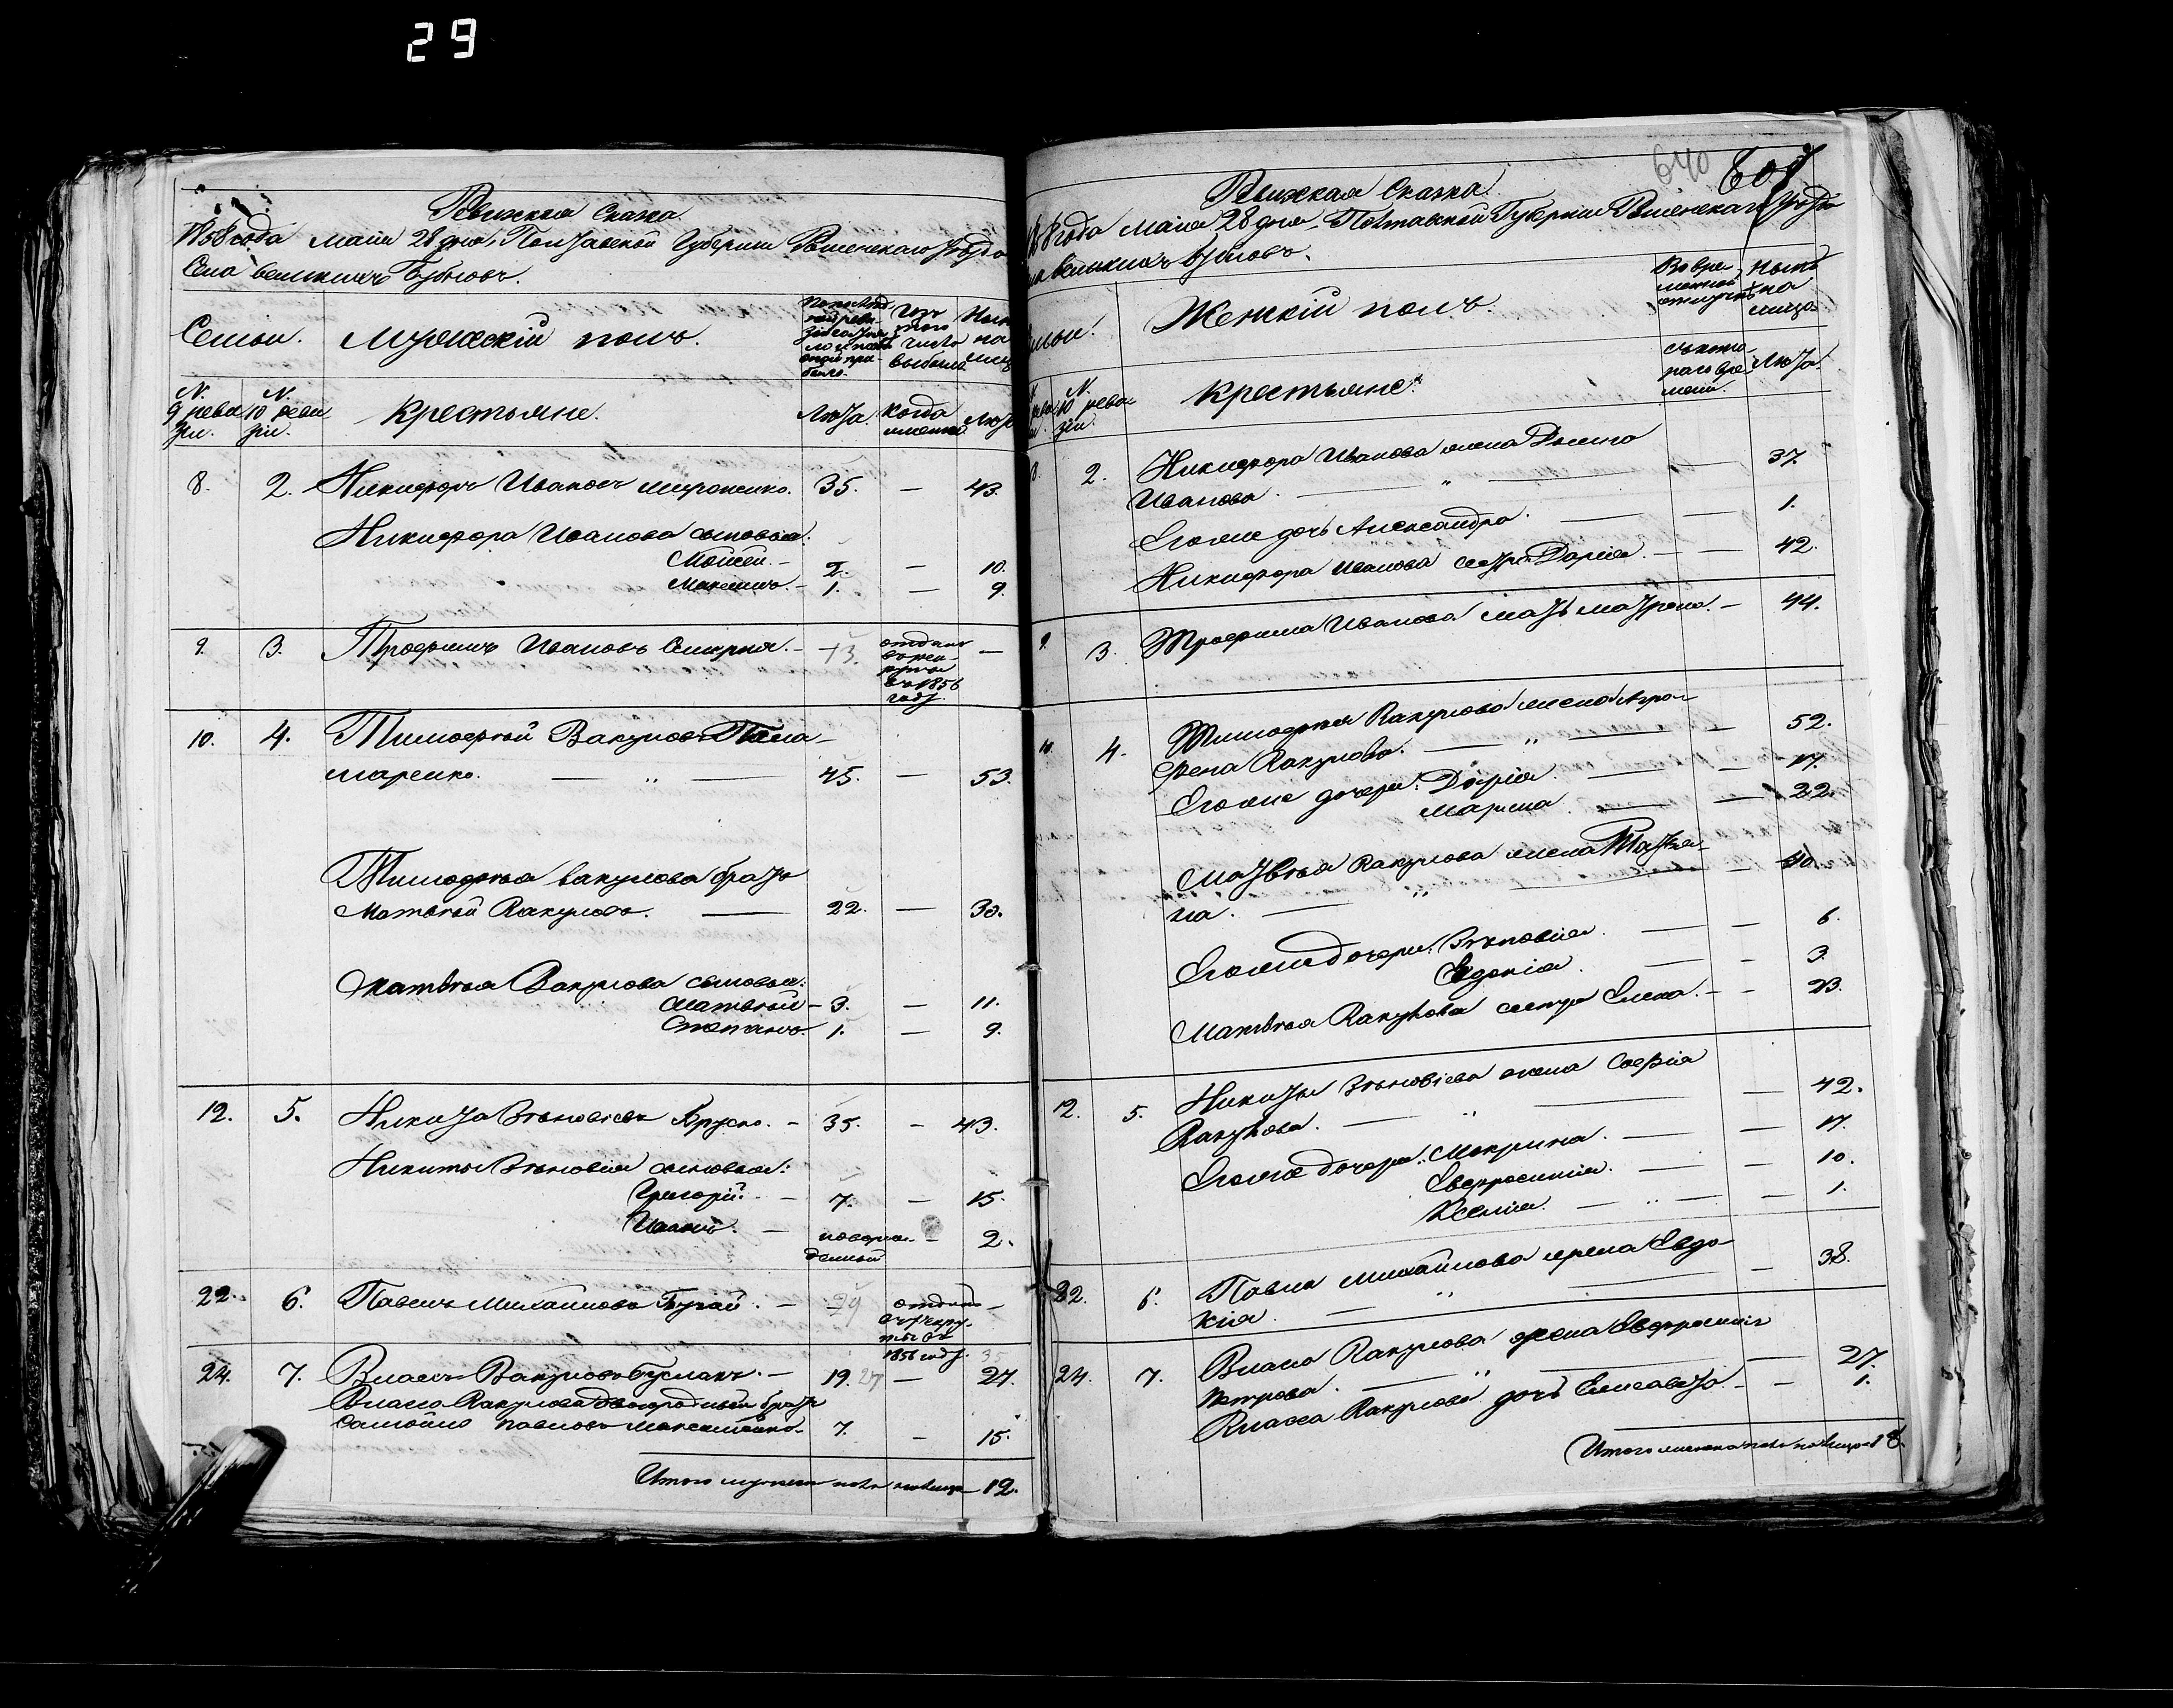 29
Ревижская Сказка.
1858 года Маiя 28 дня, Полтавской Губернiи Роменскаго Уѣзда
Села великихъ Бубновъ.
Семьи. Мужескiй полъ.
Изъ того числа выбыло.
Ныне на лицо
N. 9 ревизiи. N. 10 ревизiи. Крестьяне. Лѣта. Когда именно. Лѣта
8. 2. Никифоръ Ивановъ Мироненко. 35. — 43.
Никифора Иванова сыновья:
Моисей. — 2. — 10.
Максимъ. — 1. — 9.
9. 3. Трофимъ Ивановъ — 13. отданъ въ рекруты въ 1856 году. —
10. 4. Тимофѣй Вакуловъ Пона-
маренко. — „ — 45. — 53.
Тимофѣя Вакулова братъ
Матвѣй Вакуловъ. — 22. — 30.
Матвѣя Вакулова сыновья:
Матвѣй — 3. — 11.
Степанъ. 1. — 9.
12. 5. Никита Зѣновiевъ — 35. — 43.
Никиты Зѣновiева сыновья:
Григорiй. — 7. — 15.
Иванъ. — новорожденный — 2.
22. 6. Павелъ Михайловъ Бугай. — 29 отданъ въ рекруты въ 1856 году. —
35
24. 7. Власъ Вакуловъ Бусланъ. — 19. 27 — 27.
Власа Вакулова двоюродный братъ
Самойло Павловъ Максименко. 7. — 15.
Итого мужеска пола на лицо 12.
640 607
Ревижская Сказка.
58 года Маiя 28 дня, Полтавской Губернiи Роменскаго Уѣзда
великихъ Бубновъ.
Женскiй полъ.
Во временной отлучкѣ
Ныне на лицо.
N. 10 ревизiи. Крестьяне. съ котораго времени. Лѣта.
8. 2. Никифора Иванова жена
Иванова. — „ — 37.
Его же дочь Александра. — — 1.
Никифора Иванова сестра Дарiя. — — 42.
9. 3. Трофима Иванова мать Матрена. — 44.
10. 4. Тимофѣя Вакулова жена Агра-
фена Вакулова. — „ — — 52.
Его же дочери: Дарiя. — — 17.
Марина. — — 22.
Матвѣя Вакулова жена Татья-
на. — „ — — 40.
Его же дочери: Зѣновiя. — — 6.
Евдокiя. — — 3.
Матвѣя Вакулова сестра Елена. — — 23.
12. 5. Никиты Зѣновiева жена Софiя
Вакулова. — „ — — 42.
Его же дочери: Макрина. — — 17.
Евфросинiя. — — 10.
Ксенiя. — „ — — 1.
22. 6. Павла Михайлова жена Евдо-
кiя. — „ — — 38.
24. 7. Власа Вакулова жена Евфросинiя
Петрова. — „ — — 27.
Власа Вакулова дочь Елисавета. — — 1.
Итого женска пола на лицо 18.